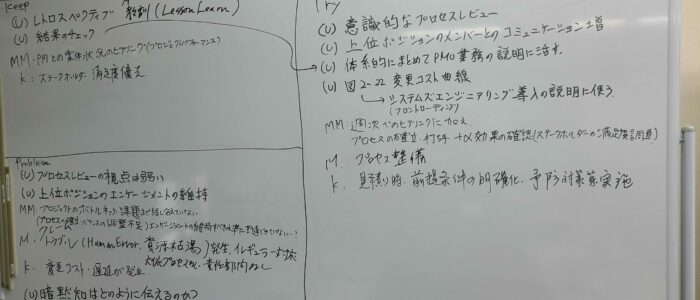 Keep
(U) レトロスペクティブ 教訓 (Lesson Learn)
(U) 結果のチェック
MM: PMとの実体状況のヒアリング(プロジェクトパフォーマンス)
K: ステークホルダー 満足度優先
Problem
(U) プロセスレビューの視点は弱い
(U) 上位ポジションのエンゲージメントの維持
MM: プロジェクトのボトルネック課題まで話し合えていない
クレーム
M. トラブル (Human Error, 資源枯渇) 発生, イレギュラー対応
対応プロセスなし, 責任部門なし
K. 変更コスト・遅延が発生
(U) 暗黙知はどのように伝えるのか?
Try
(U) 意識的なプロセスレビュー
(U) 上位ポジションのメンバーとのコミュニケーション増
(U) 体系的にまとめてPMO業務の説明に活す.
(U) 図2-22 変更コスト曲線
システムズエンジニアリング 導入の説明に使う.
(フロントローディング)
MM: 週次でのヒアリングに加え
プロセスの確立. +α効果の確認
M プロセス整備
K. 見積り時、前提条件の明確化、予防対策実施